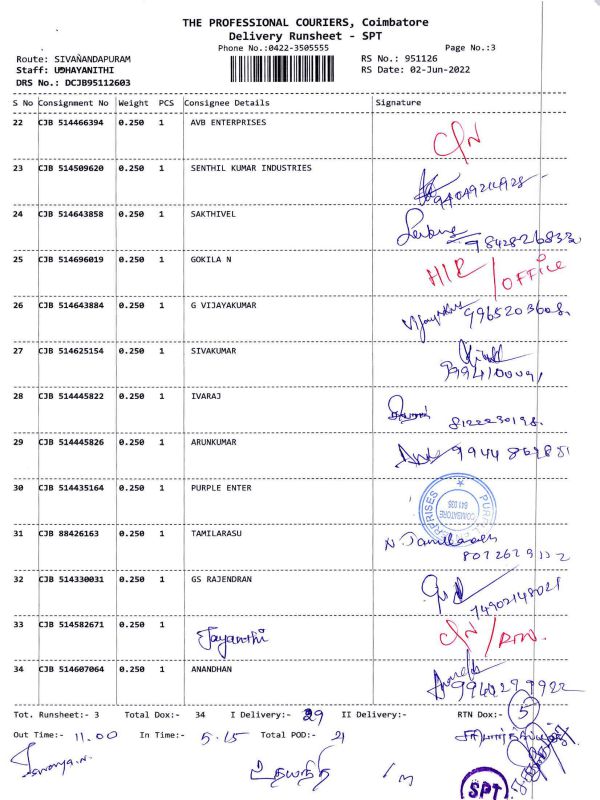 THE PROFESSIONAL COURIERS, Coimbatore
Delivery Runsheet - SPT
Phone No.:0422-3505555 Page No.:3
Route: SIVANANDAPURAM RS No.: 951126
Staff: UDHAYANITHI RS Date: 02-Jun-2022
DRS No.: DCJB95112603
S No Consignment No Weight PCS Consignee Details Signature
22 CJB 514466394 0.250 1 AVB ENTERPRISES C/N
23 CJB 514509620 0.250 1 SENTHIL KUMAR INDUSTRIES
24 CJB 514643858 0.250 1 SAKTHIVEL
9842826833
25 CJB 514696019 0.250 1 GOKILA N H/R / OFFICE
26 CJB 514643884 0.250 1 G VIJAYAKUMAR 9965203608
27 CJB 514625154 0.250 1 SIVAKUMAR
28 CJB 514445822 0.250 1 IVARAJ
8122230198.
29 CJB 514445826 0.250 1 ARUNKUMAR
30 CJB 514435164 0.250 1 PURPLE ENTER
COIMBATORE
641 035
31 CJB 88426163 0.250 1 TAMILARASU N. Tamilarasu
32 CJB 514330031 0.250 1 GS RAJENDRAN
7490214802
33 CJB 514582671 0.250 1 Jayanthi C/N / RTN.
34 CJB 514607064 0.250 1 ANANDHAN
Tot. Runsheet:- 3 Total Dox:- 34 I Delivery:- 29 II Delivery:- RTN Dox:- 5
Out Time:- 11.00 In Time:- 5.15 Total POD:- 21
உதயநிதி
SPT